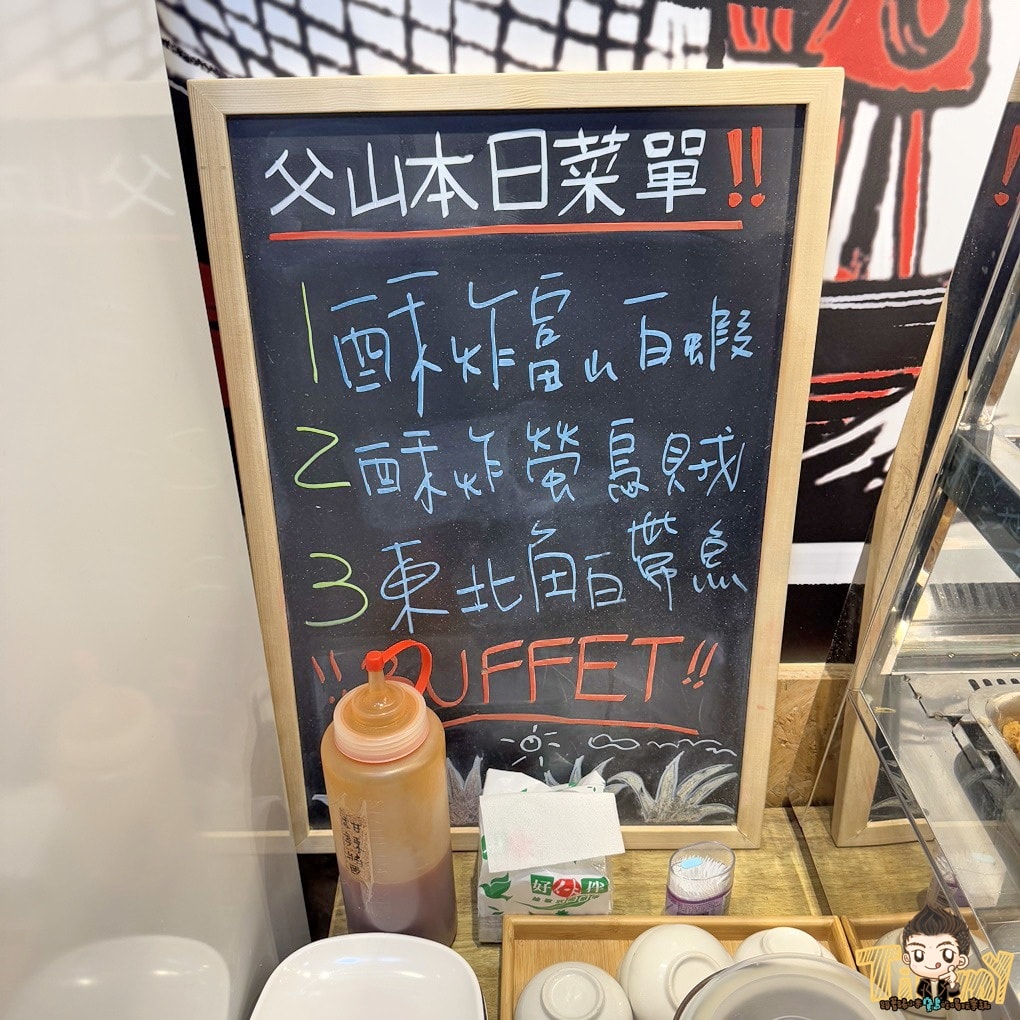 父山本日菜單!!
1 酥炸富山白蝦
2 酥炸螢烏賊
3 東北角白帶魚
!! BUFFET !!